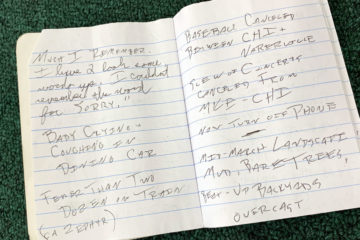 MUCH I REMEMBER.
I have 2 look some
word up, I couldn't
remember the word
for SORRY."
BABY CRYING -
COUGHING IN
DINING CAR
FEWER THAN TWO
DOZEN IN TRAIN
(CA ZEPHYR)
BASEBALL CANCELED
BETWEEN CHI +
NAPERVILLE
SLEW OF CONCERTS
CANCELED FROM
MKE - CHI
NOW TURN OFF PHONE
MID-MARCH LANDSCAPE
MUD, BARE TREES,
BEAT-UP BACKYARDS,
OVERCAST